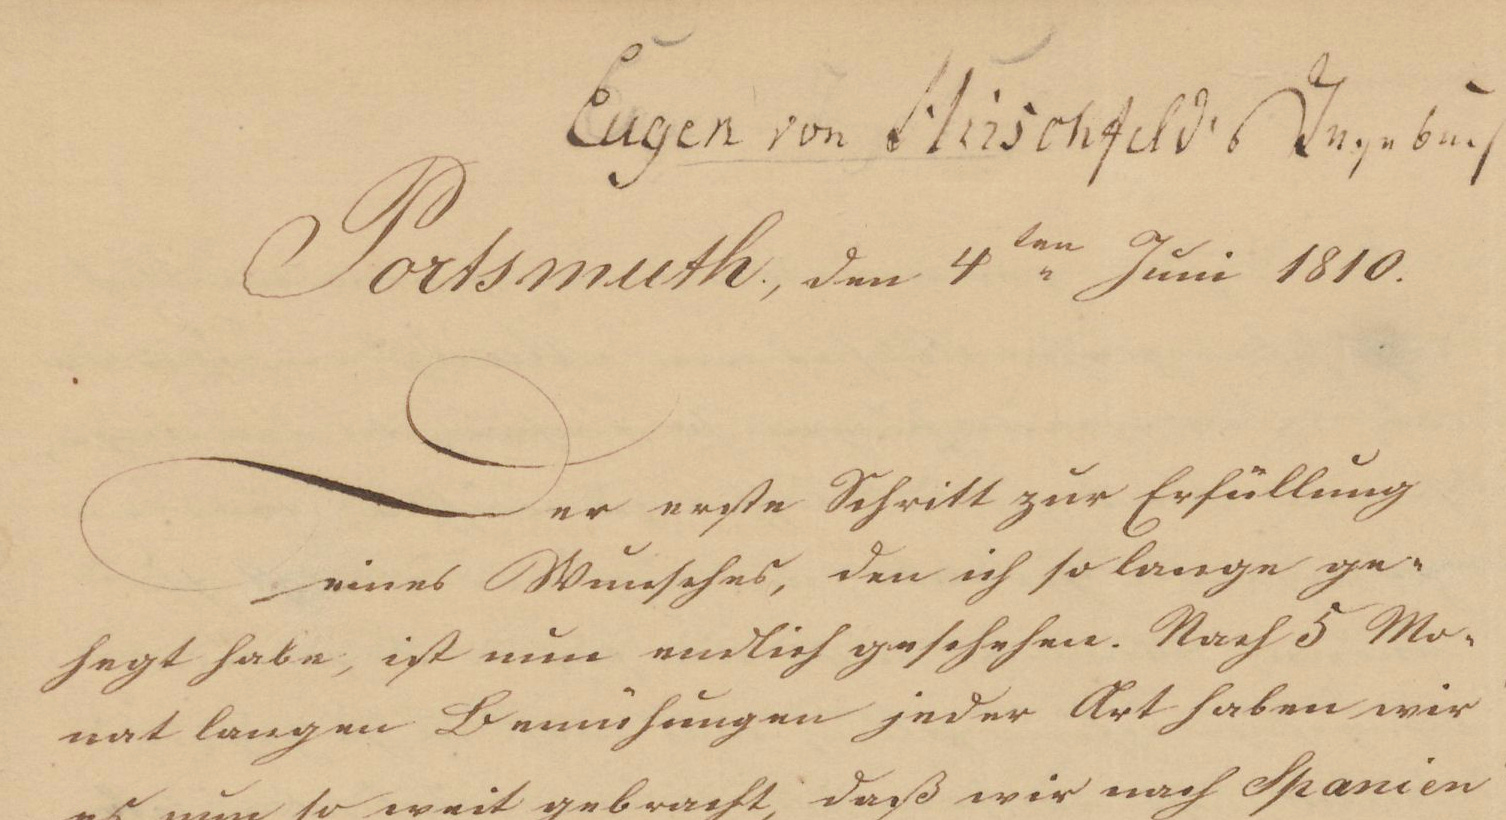 Eugen von Hirschfeld's Tagebuch
Portsmuth., den 4ten Juni 1810.
Der erste Schritt zur Erfüllung
eines Wunsches, den ich so lange ge-
hegt habe, ist nun endlich geschehen. Nach 5 Mo-
nat langen Bemühungen jeder Art haben wir
es nun so weit gebracht, daß wir nach Spanien